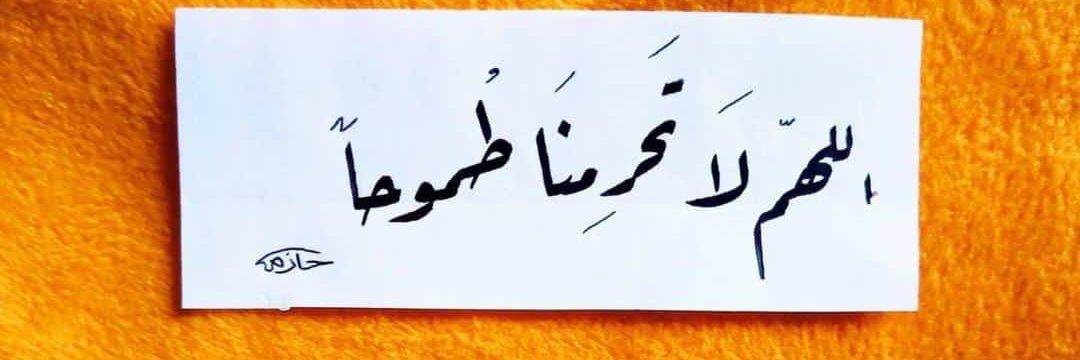 اللهمّ لَا تَحرِمنَا طُموحاً
حازم